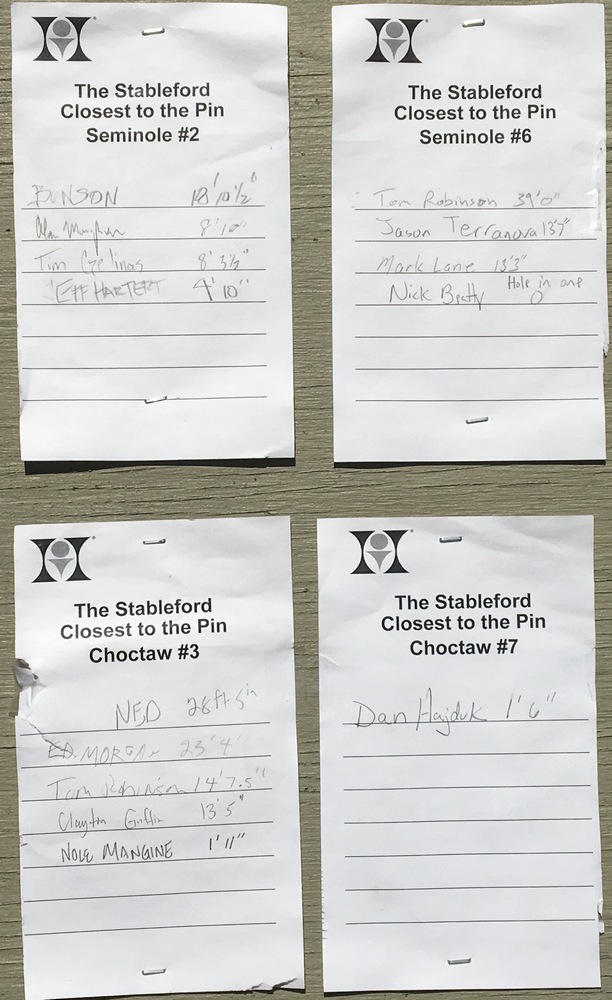 The Stableford
Closest to the Pin
Seminole #2
BUNSON 18' 10 1/2"
8' 10"
Tim Gelinas 8' 3 1/2"
HARTERT 4' 10"
The Stableford
Closest to the Pin
Seminole #6
Tom Robinson 39' 0"
Jason Terranova 13'7"
Mark Lane 13'3"
Nick Beatty Hole in one
0
The Stableford
Closest to the Pin
Choctaw #3
NED 28ft 5in
ED. MORGAN 23' 4"
Tom Robinson 14' 7.5"
Clayton Griffin 13' 5"
NOLE MANGINE 1' 11"
The Stableford
Closest to the Pin
Choctaw #7
Dan Hajduk 1' 6"